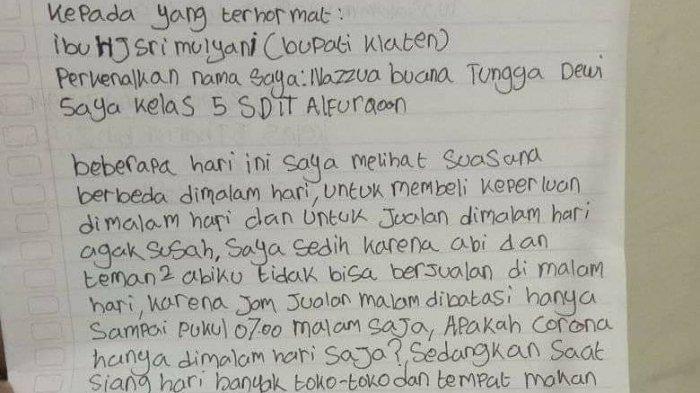 Kepada yang terhormat:
ibu HJ sri mulyani (bupati klaten)
Perkenalkan nama saya: Nazzua buana Tungga Dewi
Saya kelas 5 SDiT Alfurqoon
beberapa hari ini saya melihat suasana
berbeda dimalam hari, untuk membeli keperluan
dimalam hari dan untuk jualan dimalam hari
agak susah, saya sedih karena abi dan
teman2 abiku tidak bisa berjualan di malam
hari, karena jam jualan malam dibatasi hanya
sampai pukul 07.00 malam saja, Apakah corona
hanya dimalam hari saja?, sedangkan saat
siang hari banyak toko-toko dan tempat makan